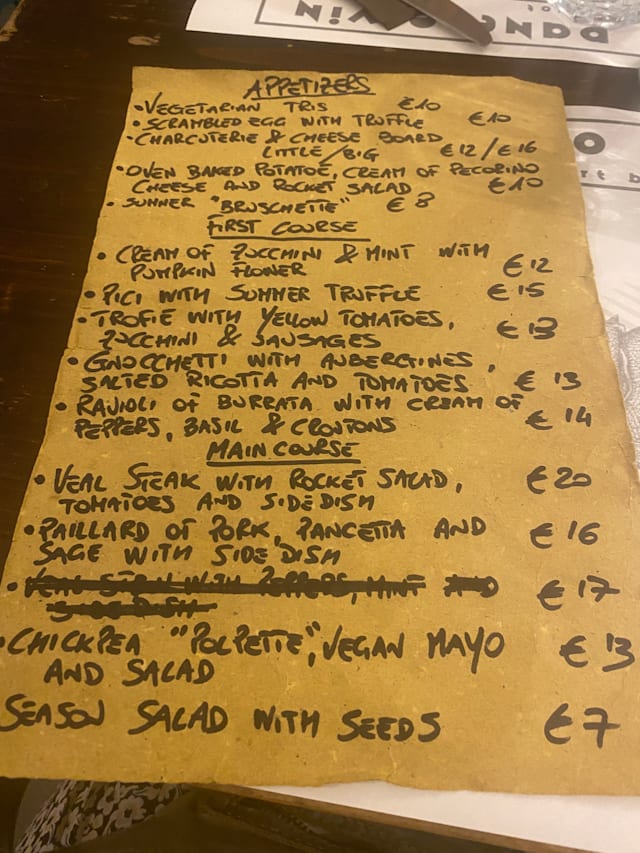 PANE VIN
O
rt b
APPETIZERS
• VEGETARIAN TRIS €10
• SCRAMBLED EGG WITH TRUFFLE €10
• CHARCUTERIE & CHEESE BOARD
LITTLE/BIG €12/€16
• OVEN BAKED POTATOE, CREAM OF PECORINO
CHEESE AND ROCKET SALAD €10
• SUMMER "BRUSCHETTE" €8
FIRST COURSE
• CREAM OF ZUCCHINI & MINT WITH
PUMPKIN FLOWER €12
• PICI WITH SUMMER TRUFFLE €15
• TROFIE WITH YELLOW TOMATOES,
ZUCCHINI & SAUSAGES €13
• GNOCCHETTI WITH AUBERGINES,
SALTED RICOTTA AND TOMATOES €13
• RAVIOLI OF BURRATA WITH CREAM OF
PEPPERS, BASIL & CROUTONS €14
MAIN COURSE
• VEAL STEAK WITH ROCKET SALAD, €20
TOMATOES AND SIDE DISH
• PAILLARD OF PORK, PANCETTA AND €16
SAGE WITH SIDE DISH
• VEAL STEW WITH PEPPERS, MINT AND €17
SIDE DISH
• CHICKPEA "POLPETTE", VEGAN MAYO €13
AND SALAD
SEASON SALAD WITH SEEDS €7